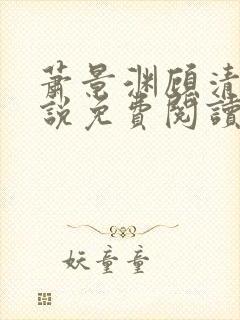 萧景渊顾清
说免費閱讀
妖童童